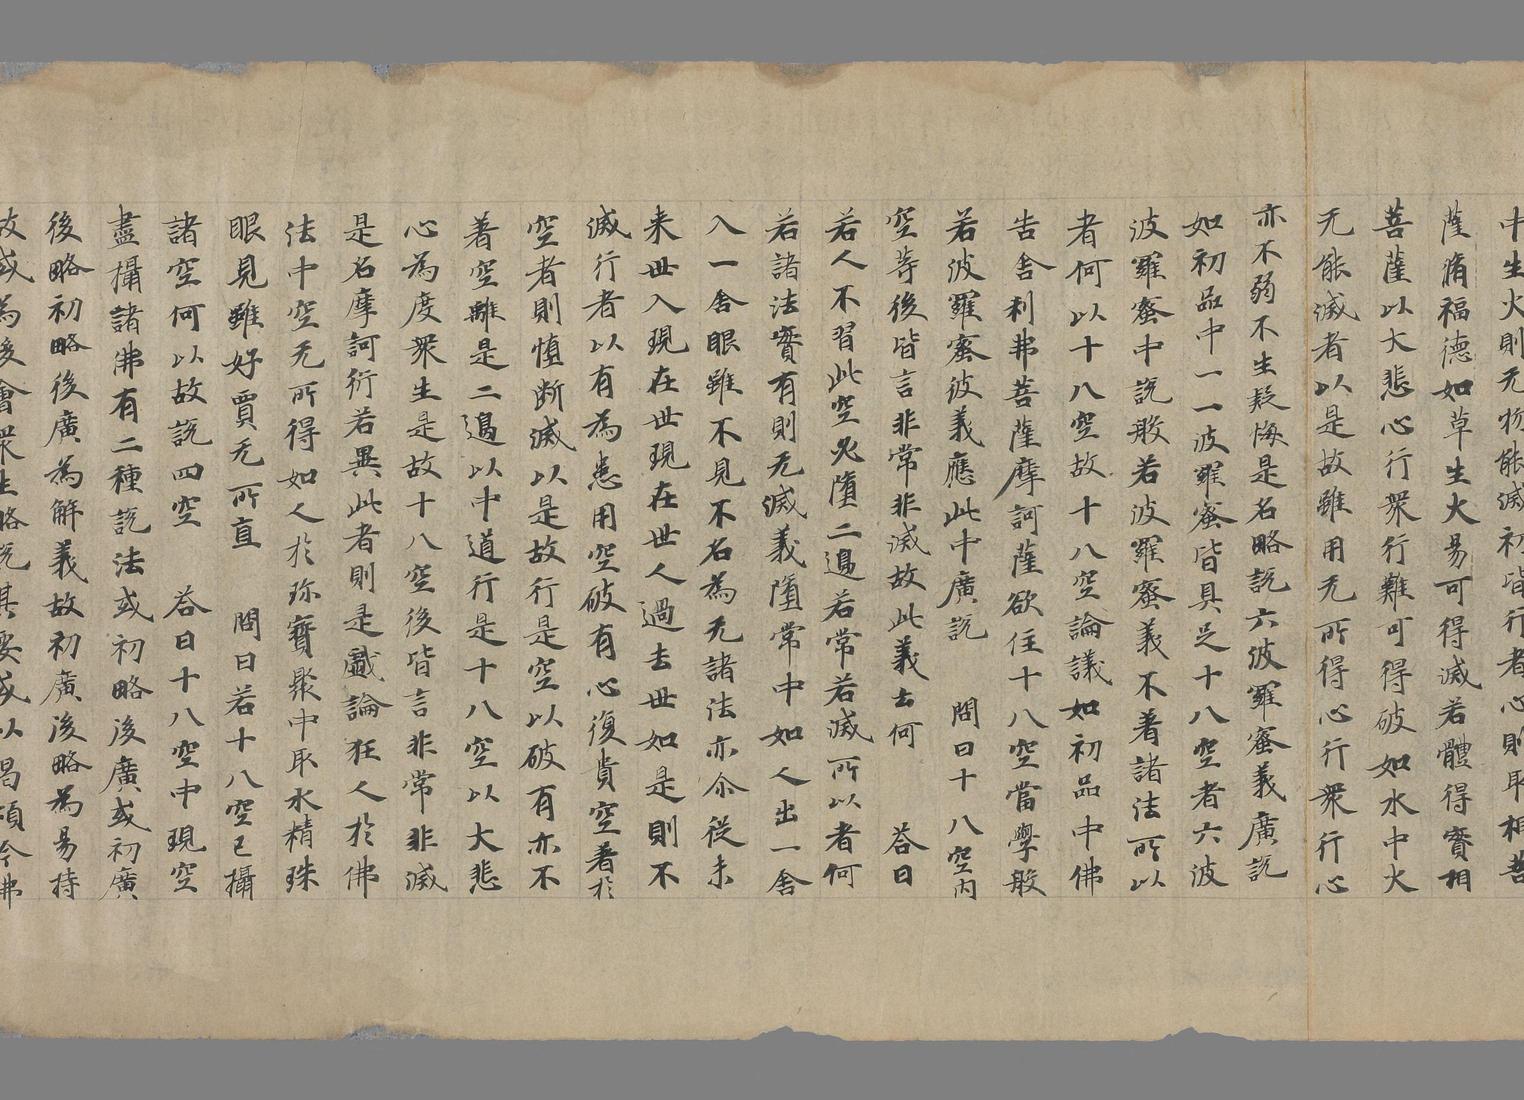 中生火則无物能滅初皆行者心則取相菩
薩脩福德如草生火易可得滅若體得實相
菩薩以大悲心行衆行難可得破如水中火
无能滅者以是故雖用无所得心行衆行心
亦不弱不生疑悔是名略說六波羅蜜義廣說
如初品中一一波羅蜜皆具足十八空者六波
波羅蜜中說般若波羅蜜義不著諸法所以
者何以十八空故十八空論議如初品中佛
告舍利弗菩薩摩訶薩欲住十八空當學般
若波羅蜜彼義應此中廣說 問曰十八空內
空等後皆言非常非滅故此義云何 荅曰
若人不習此空必墮二邊若常若滅所以者何
若諸法實有則无滅義墮常中如人出一舍
入一舍眼雖不見不名為无諸法亦尒從未
来世入現在世現在世人過去世如是則不
滅行者以有為患用空破有心復貴空著扵
空者則墮斷滅以是故行是空以破有亦不
著空離是二邊以中道行是十八空以大悲
心為度衆生是故十八空後皆言非常非滅
是名摩訶衍若異此者則是戲論狂人扵佛
法中空无所得如人扵珎寶聚中取水精珠
眼見雖好賈无所直 問曰若十八空已攝
諸空何以故說四空 荅曰十八空中現空
盡攝諸佛有二種說法或初略後廣或初廣
後略初略後廣為解義故初廣後略為易持
故或為後會衆生略說其要或以偈頌今佛